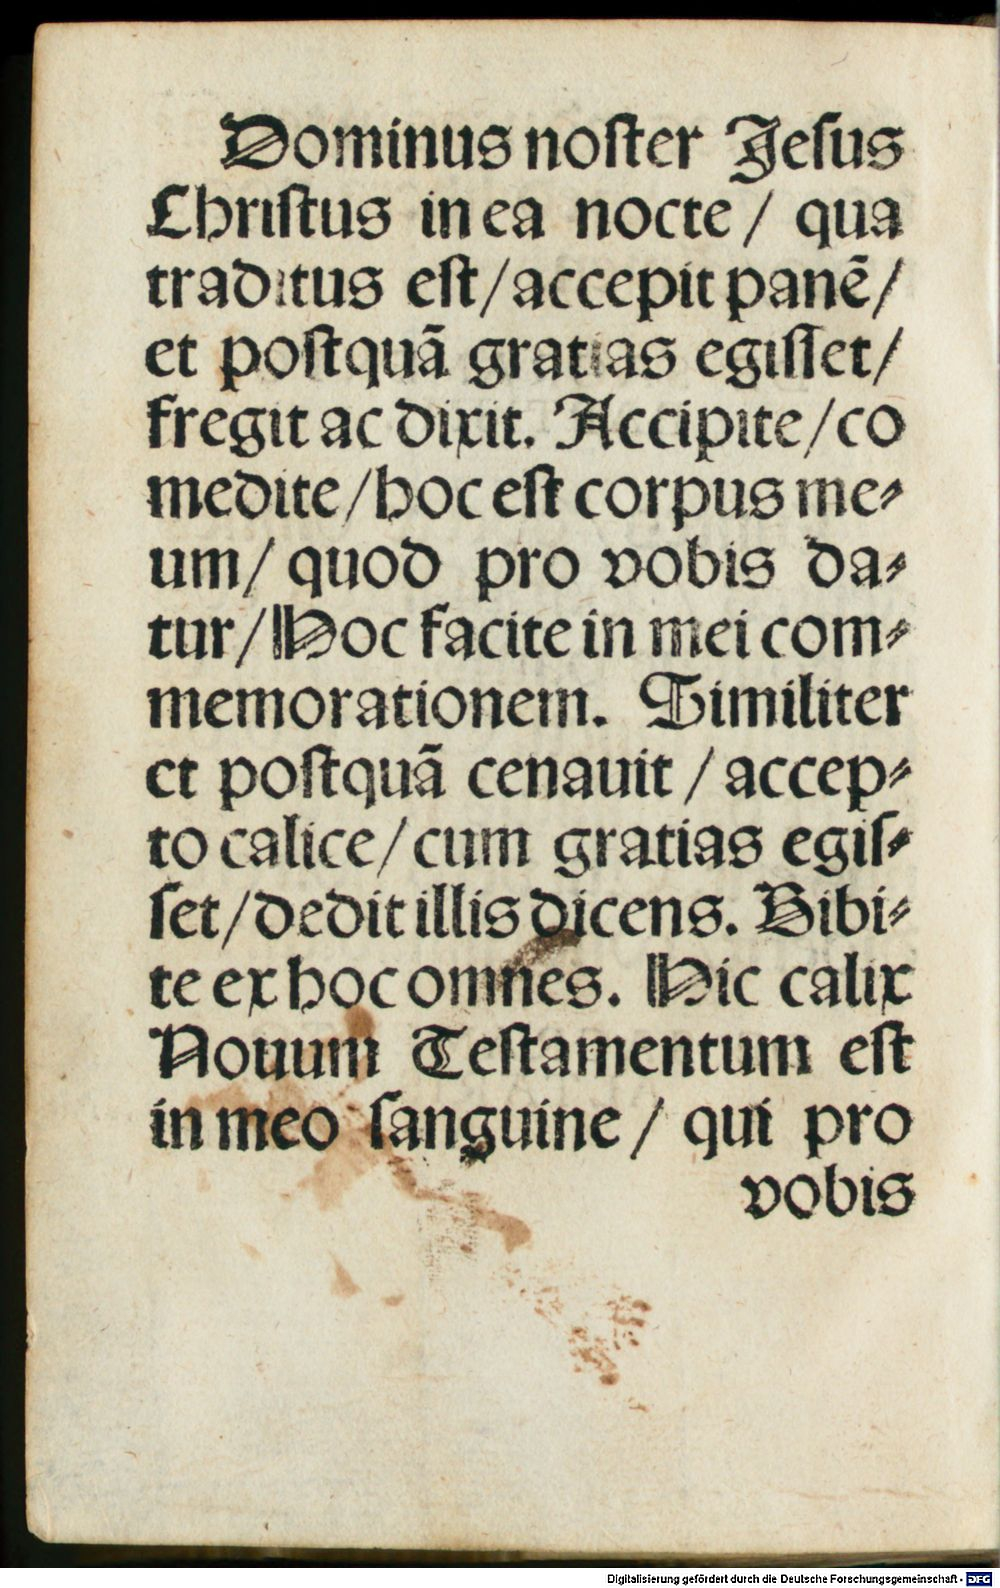 Dominus noſter Jeſus
Chriſtus in ea nocte / qua
traditus eſt/accepit panē/
et poſtquā gratias egiſſet/
fregit ac dixit. Accipite/co
medite/hoc eſt corpus me⸗
um/ quod pro vobis da⸗
tur/Hoc facite in mei com⸗
memorationem. Similiter
et poſtquā cenauit / accep⸗
to calice/cum gratias egiſ⸗
ſet/dedit illis dicens. Bibi⸗
te ex hoc omnes. Hic calix
Nouum Teſtamentum eſt
in meo ſanguine / qui pro
vobis
Digitalisierung gefördert durch die Deutsche Forschungsgemeinschaft - DFG